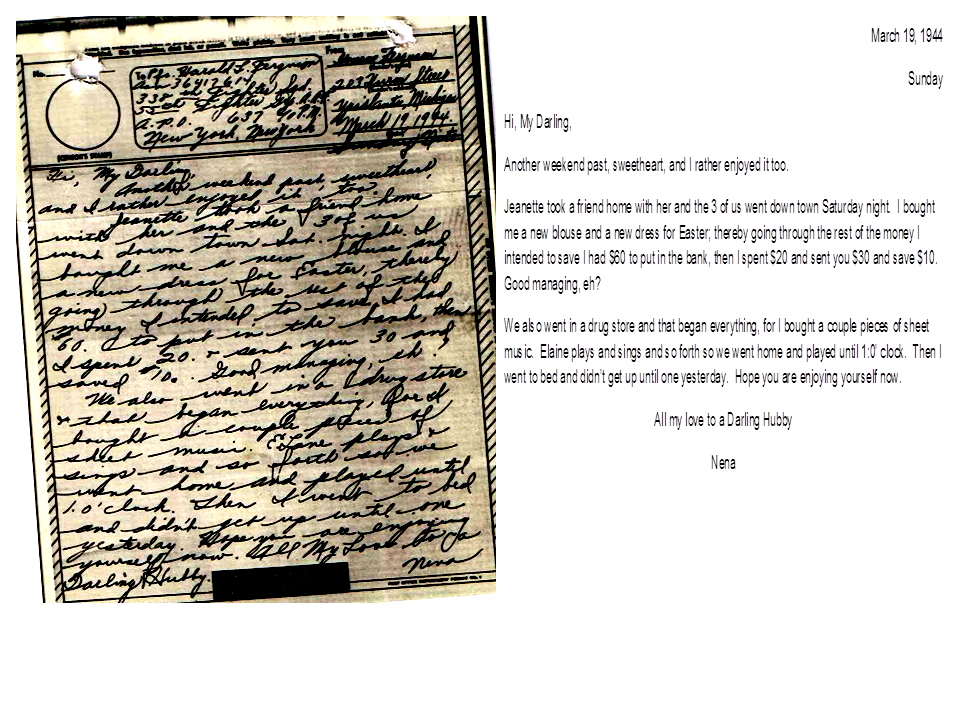 No.
To: Pfc. Harold L. Ferguson
Asn 36417614
338 th Fighter Sqd.
55 th Fighter Gp.
A.P.O. 637 % P.M.
New York, New York
From
Ferguson
Street
Ypsilanti, Michigan
March 19, 1944.
(CENSOR'S STAMP)
Hi, My Darling,
Another weekend past, sweetheart,
and I rather enjoyed it too.
Jeanette took a friend home
with her and the 3 of us
went down town Sat. night. I
bought me a new blouse and
a new dress for Easter, thereby
going through the rest of the
money I intended to save, I had
60. to put in the bank, then
I spent 20. & sent you 30 and
saved $10. Good managing, eh.
We also went in a drug store
& that began everything, for I
bought a couple pieces of
sheet music. Elane plays &
sings and so forth so we
went home and played until
1:0'clock. Then I went to bed
and didn't get up until one
yesterday. Hope you are enjoying
yourself now. All My Love to a
Darling Hubby. Nena
March 19, 1944
Sunday
Hi, My Darling,
Another weekend past, sweetheart, and I rather enjoyed it too.
Jeanette took a friend home with her and the 3 of us went down town Saturday night. I bought
me a new blouse and a new dress for Easter; thereby going through the rest of the money I
intended to save I had $60 to put in the bank, then I spent $20 and sent you $30 and save $10.
Good managing, eh?
We also went in a drug store and that began everything, for I bought a couple pieces of sheet
music. Elaine plays and sings and so forth so we went home and played until 1:0' clock. Then I
went to bed and didn't get up until one yesterday. Hope you are enjoying yourself now.
All my love to a Darling Hubby
Nena